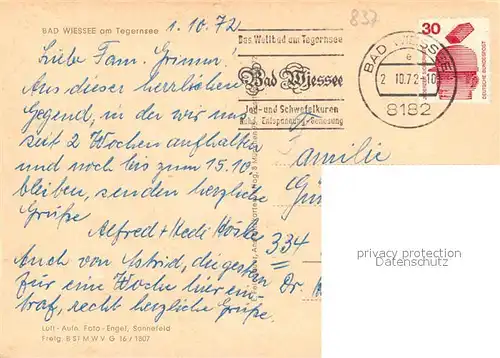 BAD WIESSEE am Tegernsee
1.10.72
837
Das Weltbad am Tegernsee
Bad Wiessee
Jod- und Schwefelkuren
Erholung
BAD WIESSEE
e
2.10.72-10
8182
30
DEUTSCHE BUNDESPOST
Liebe Fam. Grimm!
Aus dieser herrlichen
Gegend, in der wir uns
seit 2 Wochen aufhalten
und noch bis zum 15.10.
bleiben, senden herzliche
Grüße
Alfred + Hedi
Auch von Astrid, die gestern
für eine Woche hier ein-
traf, recht herzliche Grüße.
Familie
334
Dr.
privacy protection
Datenschutz
Luft-Aufn. Foto-Engel, Sonnefeld
Freig. B St M W V G 16/1807